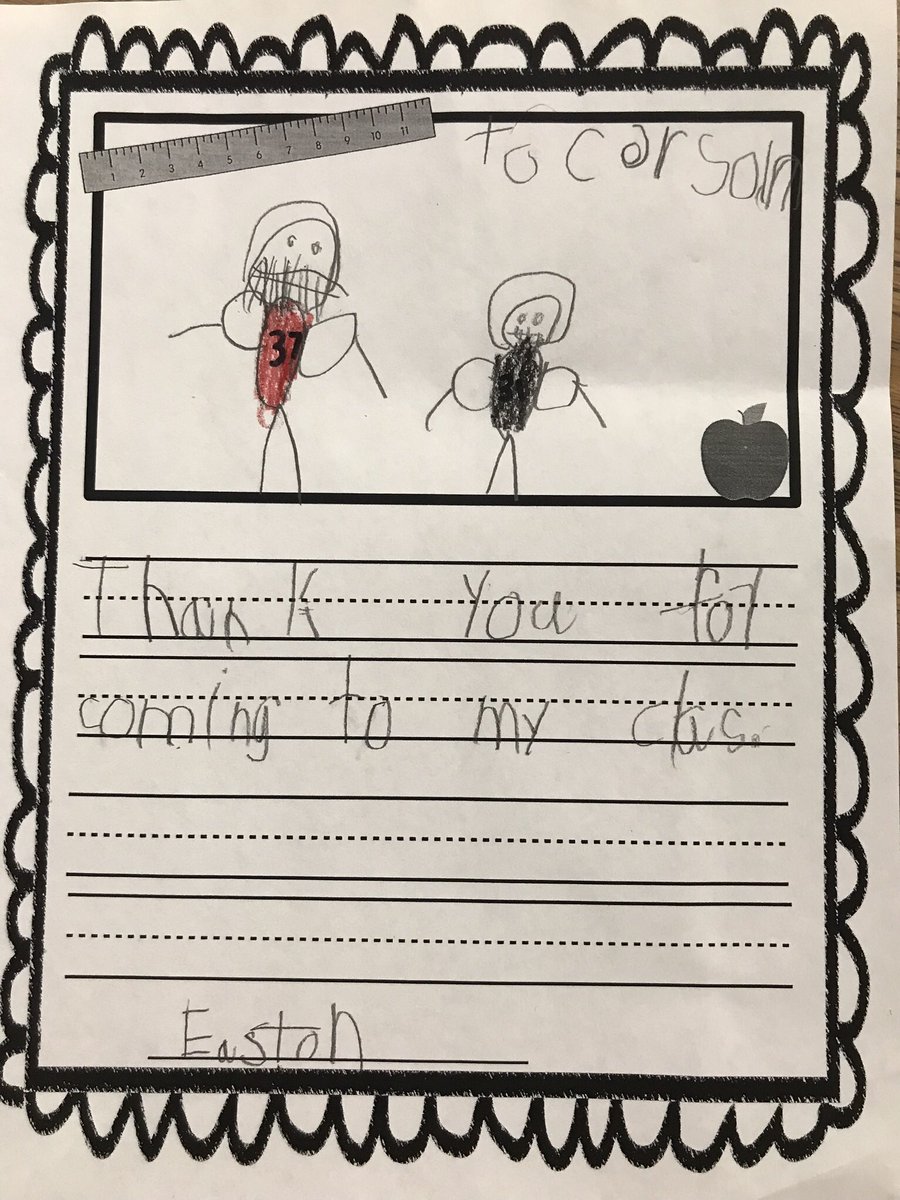 1 2 3 4 5 6 7 8 9 10 11
to carson
37
Thank you for
coming to my clas.
Easton